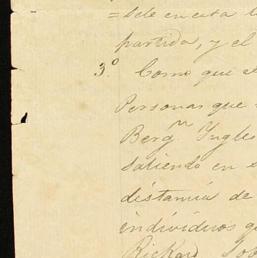 =sele en esta
partida, y el
3.º Como que se
Personas que
Berg.ⁿ Yngles
saliendo en
distancia de
individuos q
Rickard